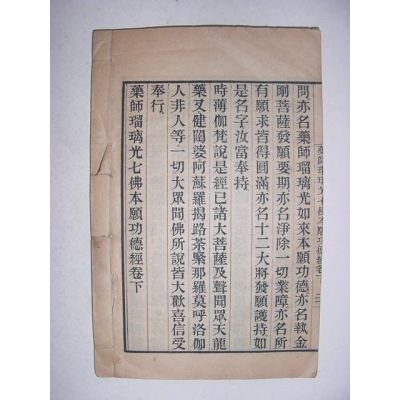 問亦名藥師瑠璃光如來本願功德亦名執金
剛菩薩發願要期亦名淨除一切業障亦名所
有願求皆得圓滿亦名十二大將發願護持如
是名字汝當奉持
時薄伽梵說是經已諸大菩薩及聲聞眾天龍
藥叉健闥婆阿蘇羅揭路荼緊那羅莫呼洛伽
人非人等一切大眾聞佛所說皆大歡喜信受
奉行
藥師瑠璃光七佛本願功德經卷下